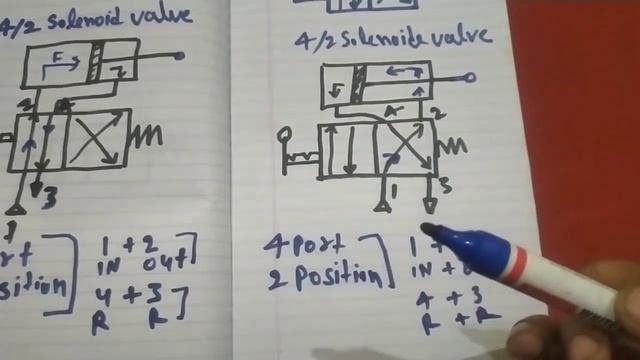 4/2 solenoid valve
F
2
4
3
1
1 + 2
IN OUT
4 + 3
R R
4/2 Solenoide valve
4
2
1
3
4 port
2 Position
1 +
IN +
4 + 3
R + R